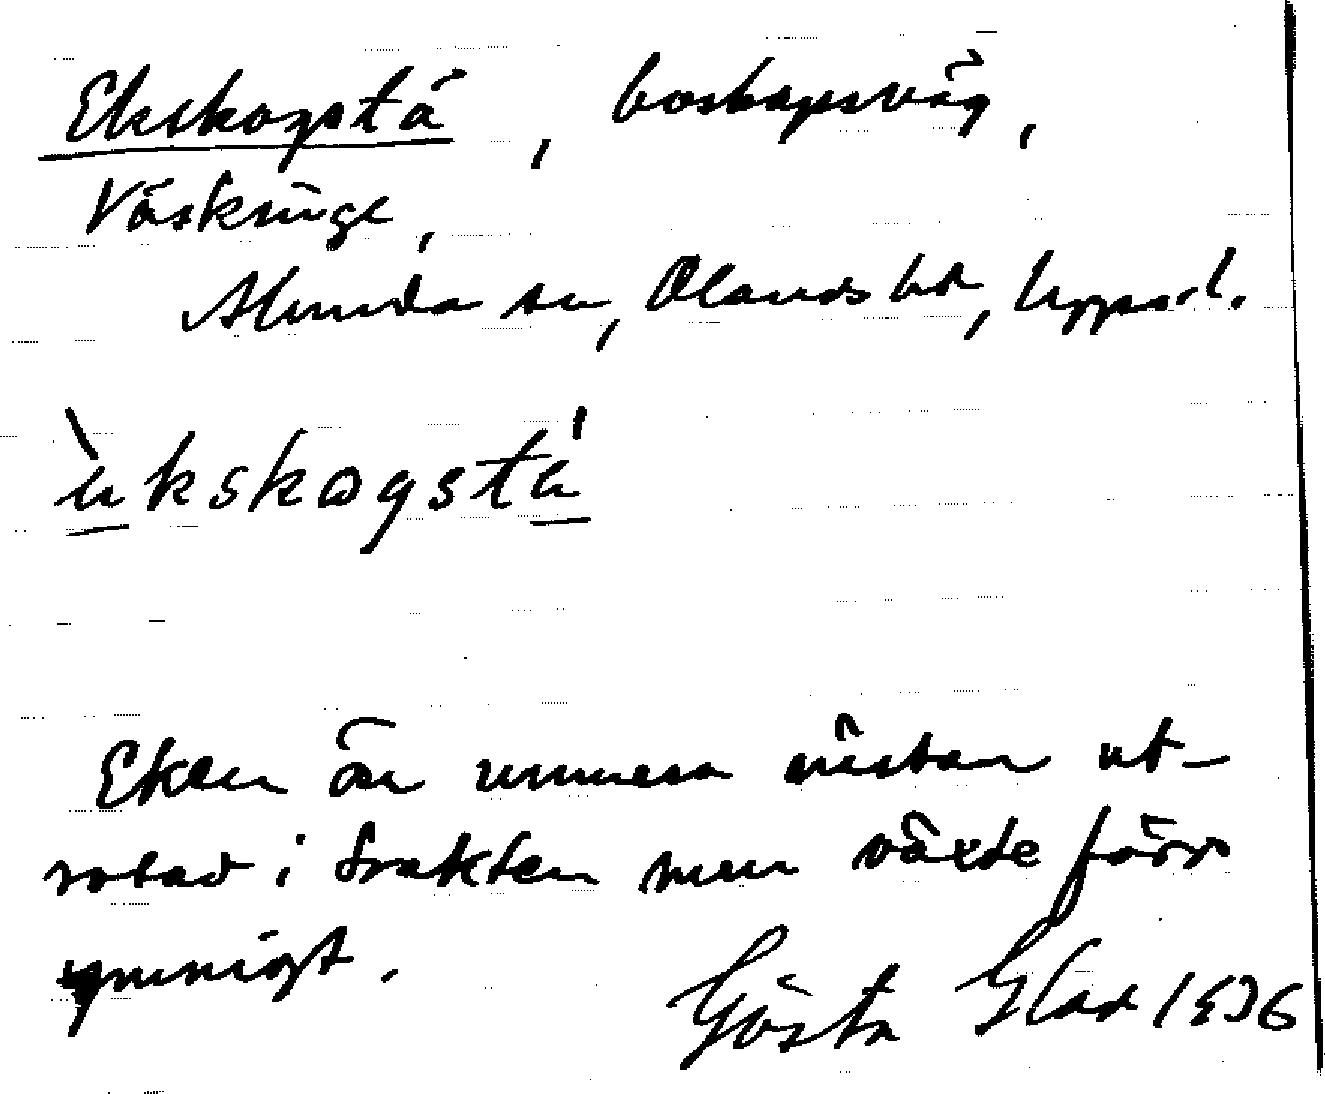 Ekskogstå, boskapsväg,
Väskinge,
Alunda sn, Olands hd, Upps. l.
ὺkskogstá
Eken är numera nästan ut-
rotad i trakten men växte förr
ymnigt.
Gösta Glad 1936